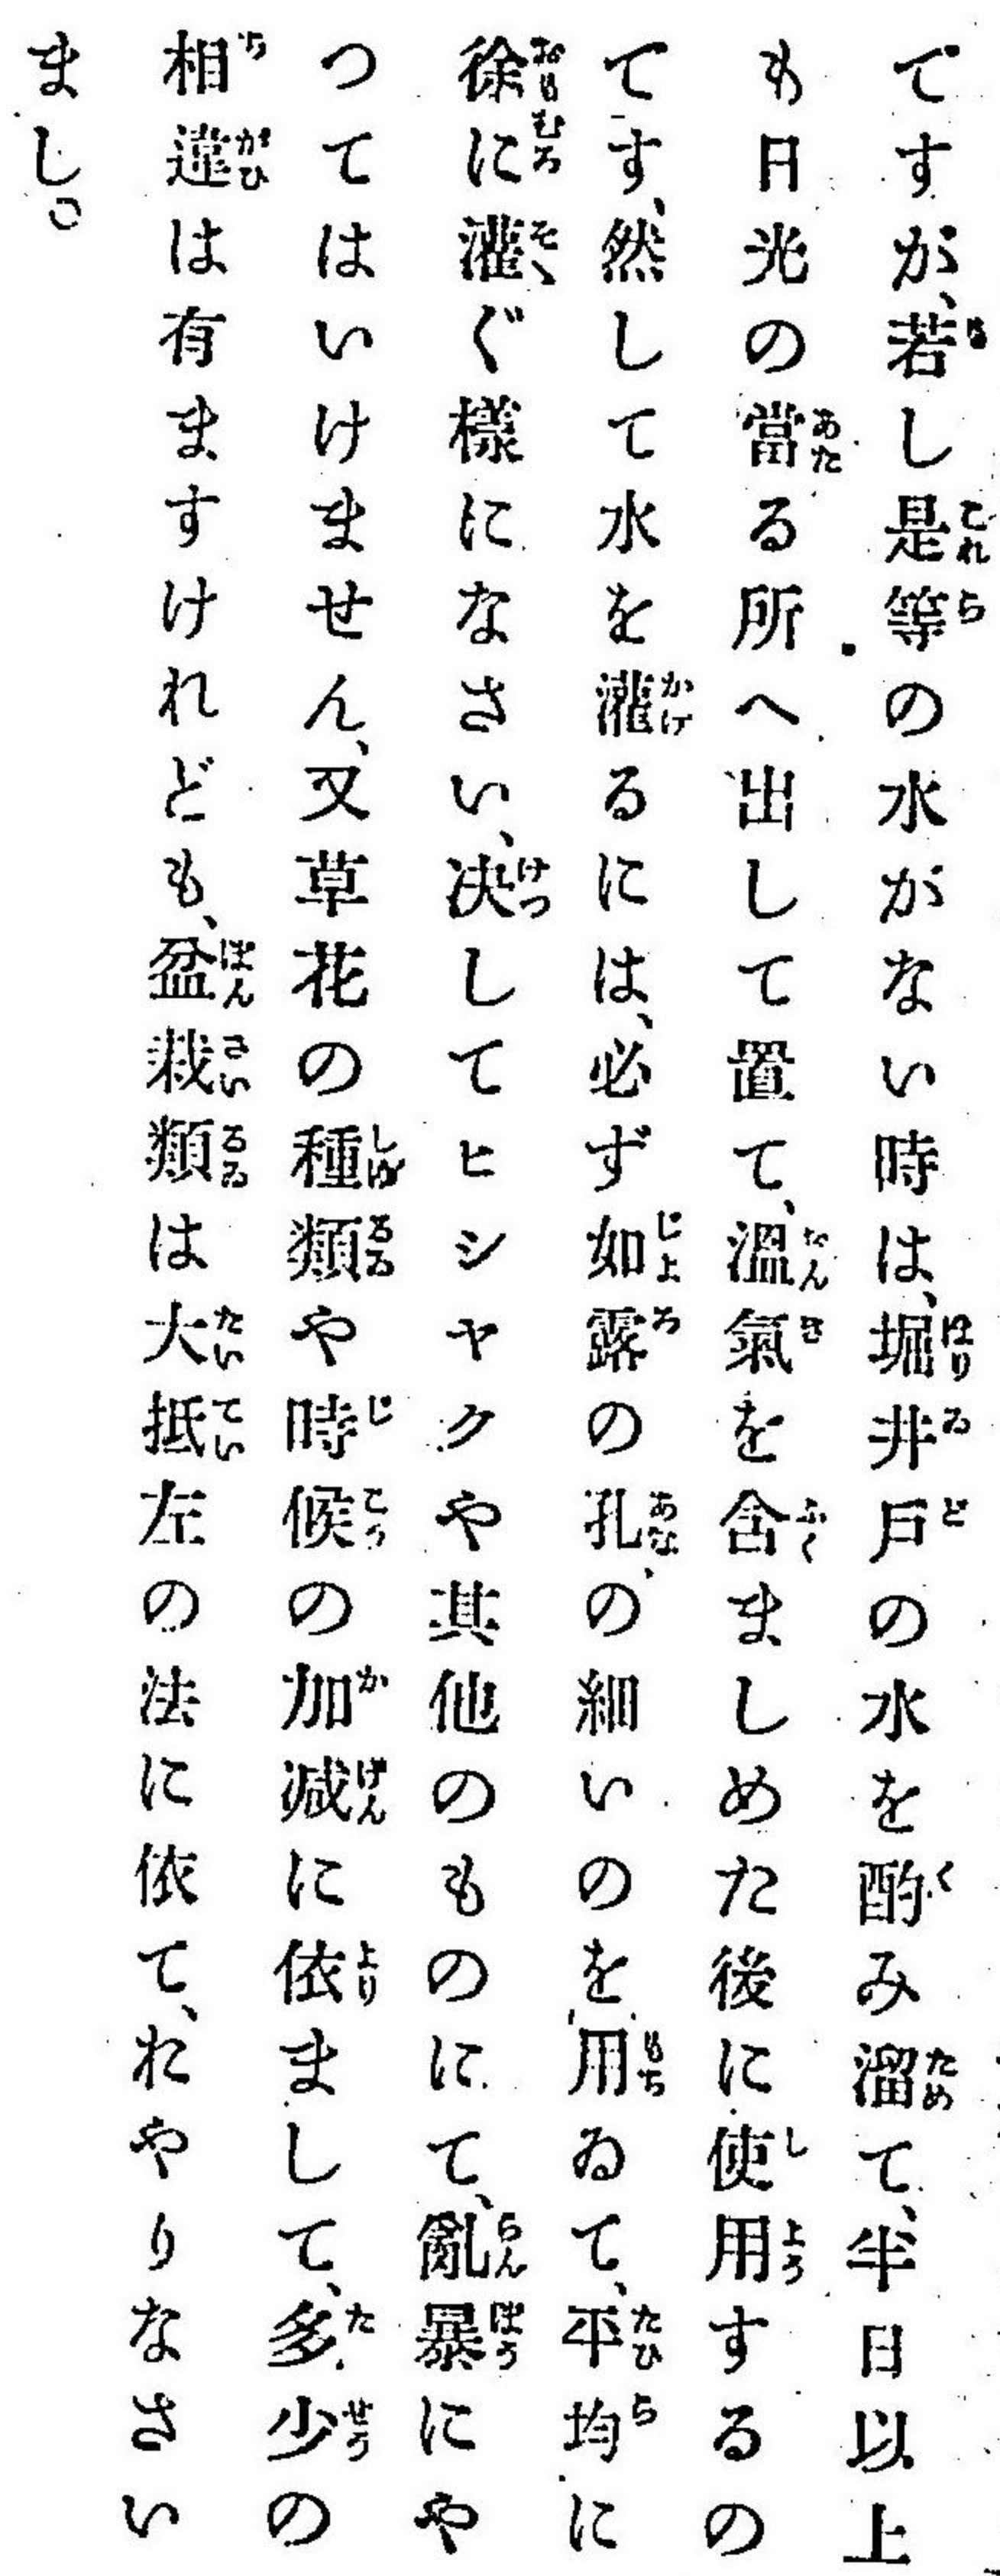 ですが、若し是等の水がない時は、堀井戸の水を酌み溜て、半日以上
も日光の當る所へ出して置て、溫氣を含ましめた後に使用するの
です、然して水を灌るには、必ず如露の孔の細いのを用ゐて、平均に
徐に灌ぐ樣になさい、决してヒシヤクや其他のものにて、亂暴にや
つてはいけません、又草花の種類や時候の加减に依まして、多少の
相違は有ますけれども、盆栽類は大抵左の法に依て、おやりなさい
まし。